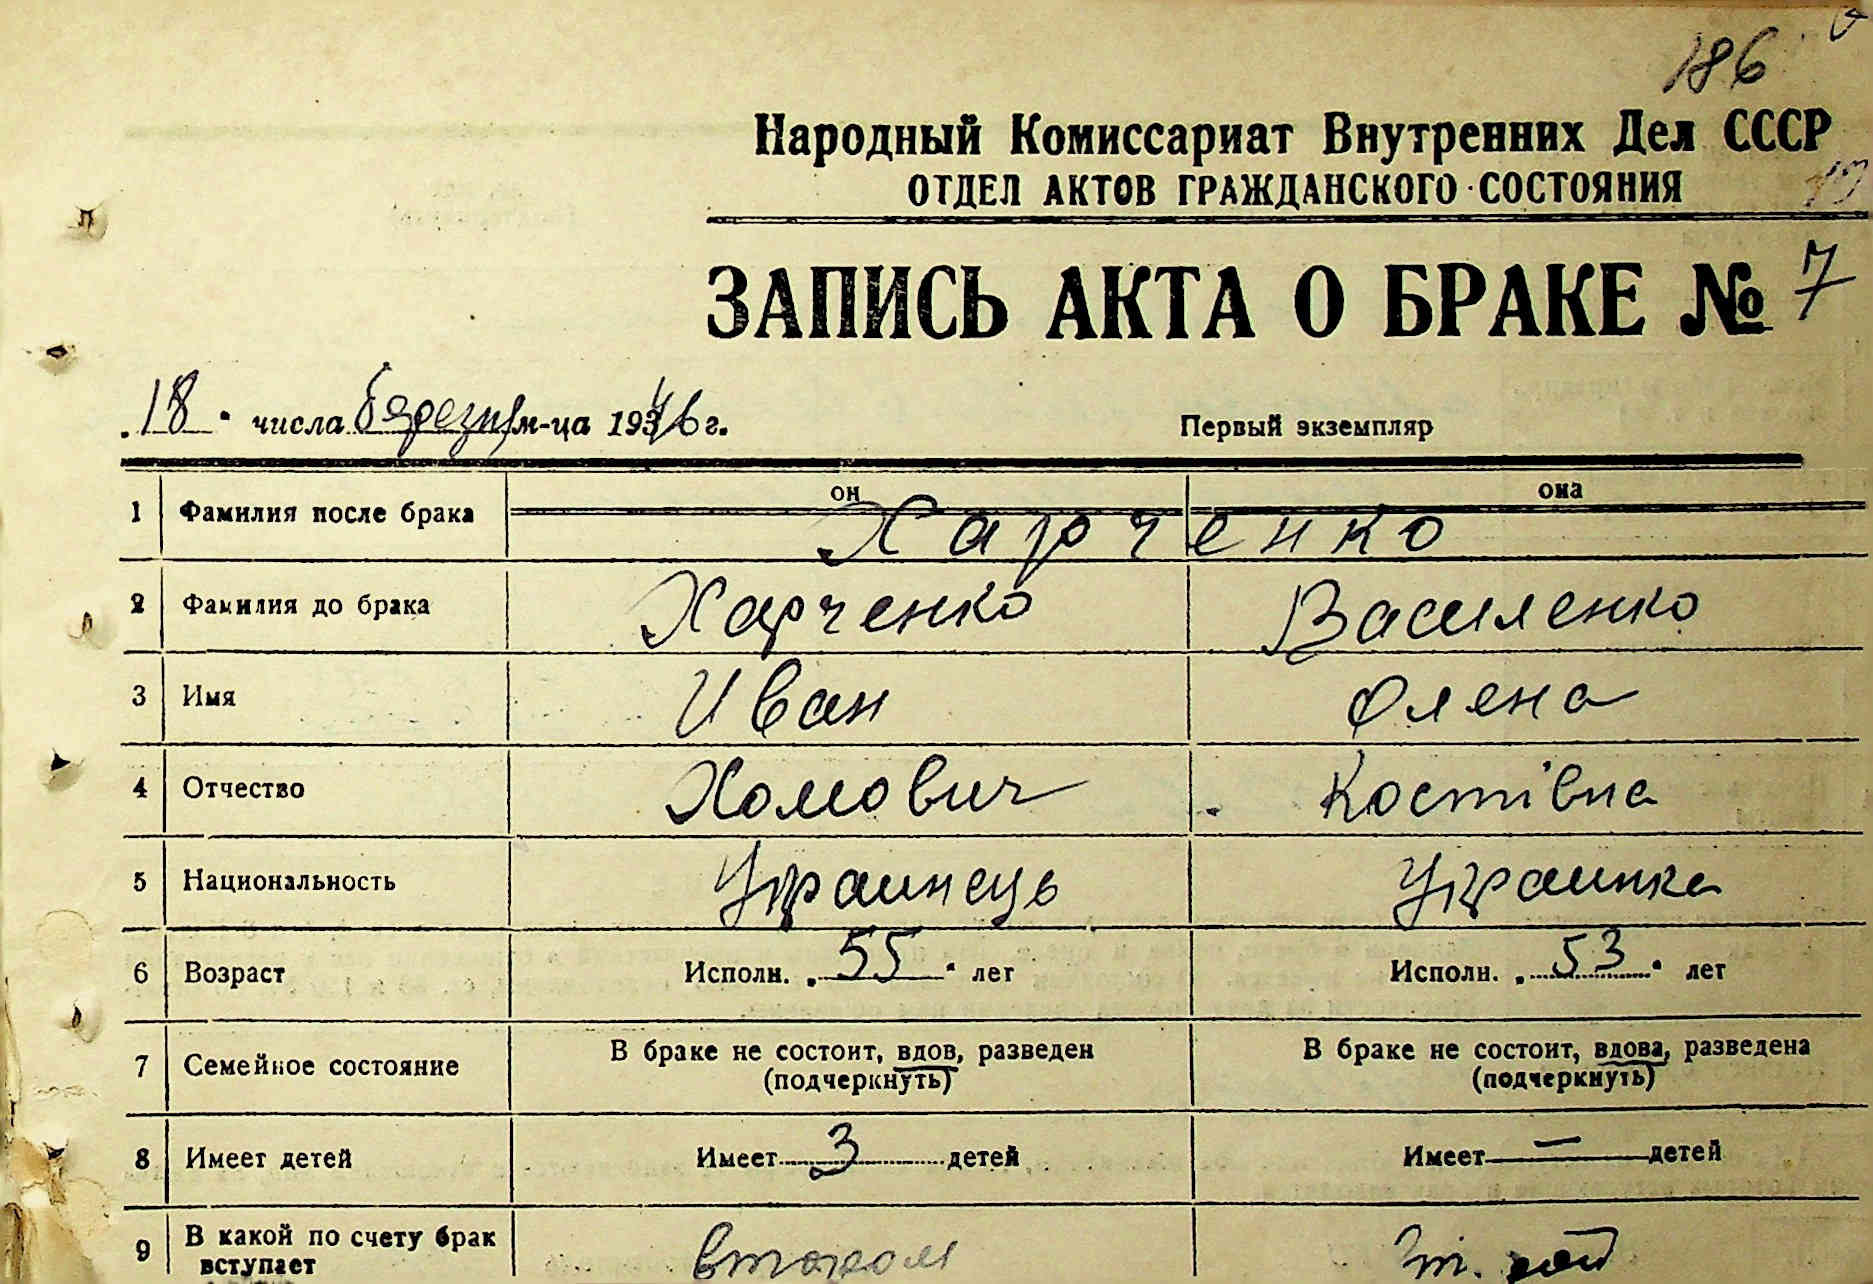 186
Народный Комиссариат Внутренних Дел СССР
ОТДЕЛ АКТОВ ГРАЖДАНСКОГО СОСТОЯНИЯ
ЗАПИСЬ АКТА О БРАКЕ № 7
"18" числа березня м-ца 1946 г.
Первый экземпляр
он она
1 Фамилия после брака Харченко
2 Фамилия до брака Харченко Василенко
3 Имя Иван Олена
4 Отчество Хомович Костівна
5 Национальность Украинець Украинка
6 Возраст Исполн. "55" лет Исполн. "53" лет
7 Семейное состояние В браке не состоит, вдов, разведен (подчеркнуть) В браке не состоит, вдова, разведена (подчеркнуть)
8 Имеет детей Имеет 3 детей Имеет — детей
9 В какой по счету брак вступает втором